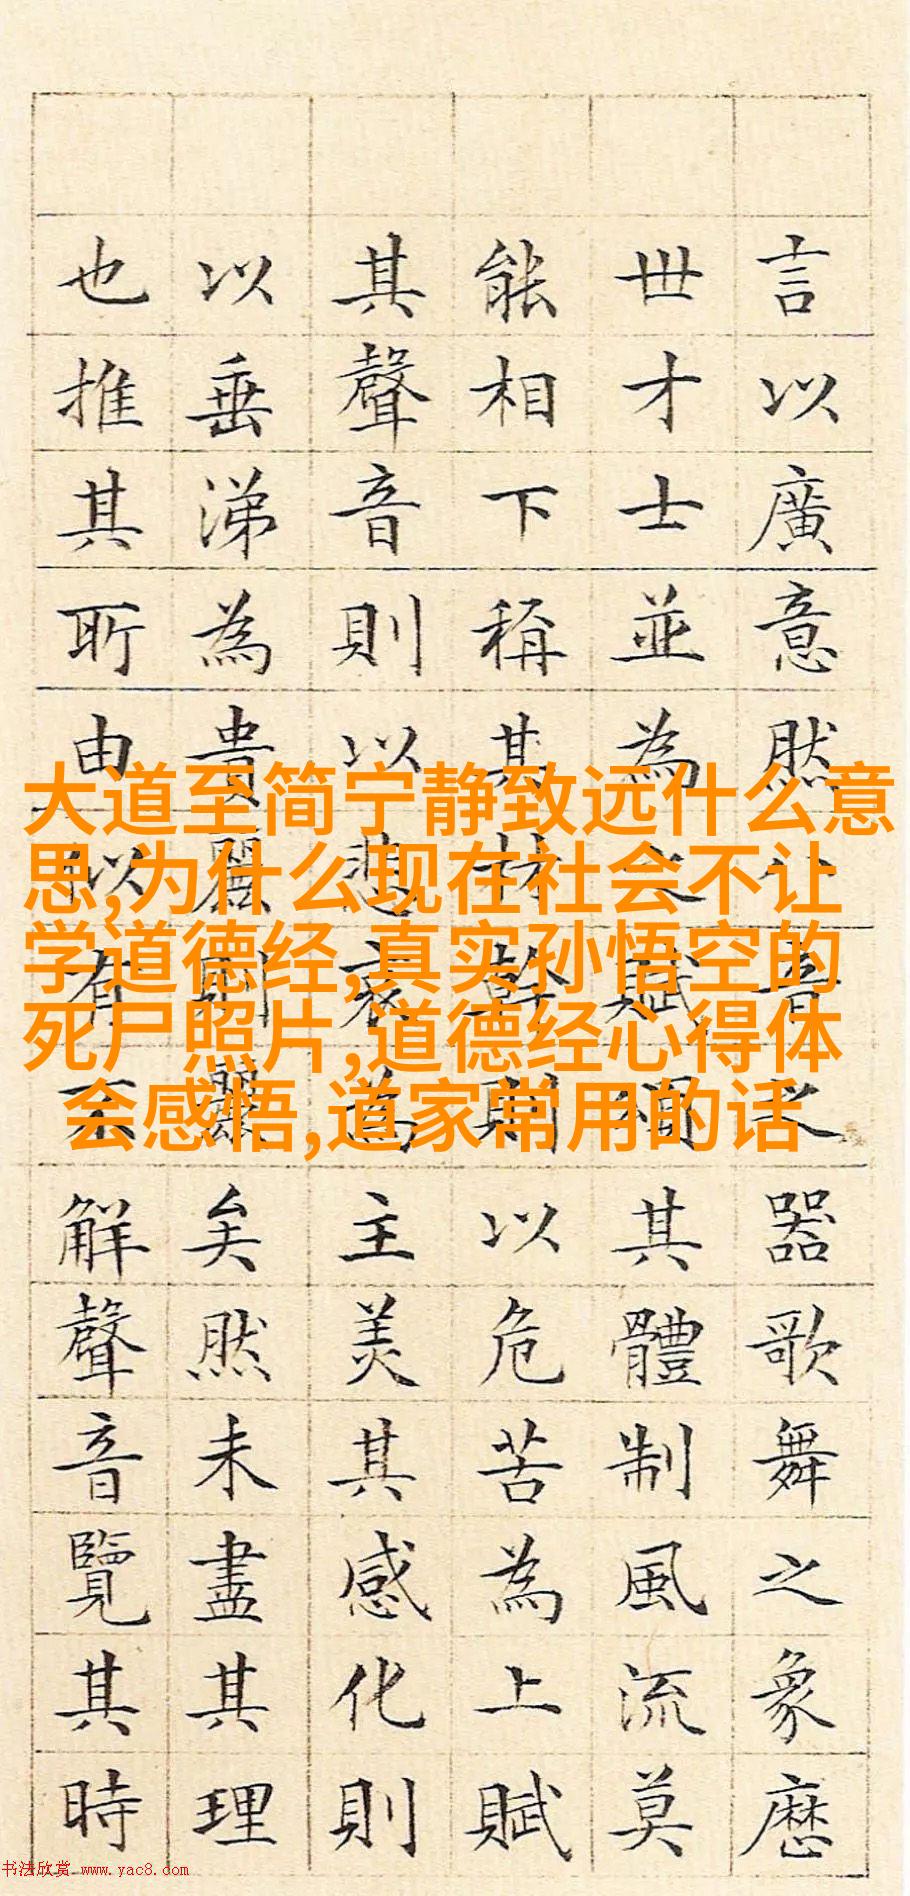 大道至简宁静致远什么意
思,为什么现在社会不让
学道德经,真实孙悟空的
死尸照片,道德经心得体
会感悟,道家常用的话
言以廣意然八音之器歌舞之象歷
世才士並為之賦頌其體制風流莫
能相下稱其材幹則以危苦為上賦
其聲音則以悲哀為主美其感化則
以垂涕為貴麗則麗矣然未盡其理
也推其所由似有不解聲音覽其時
书法欣赏 www.yac8.com